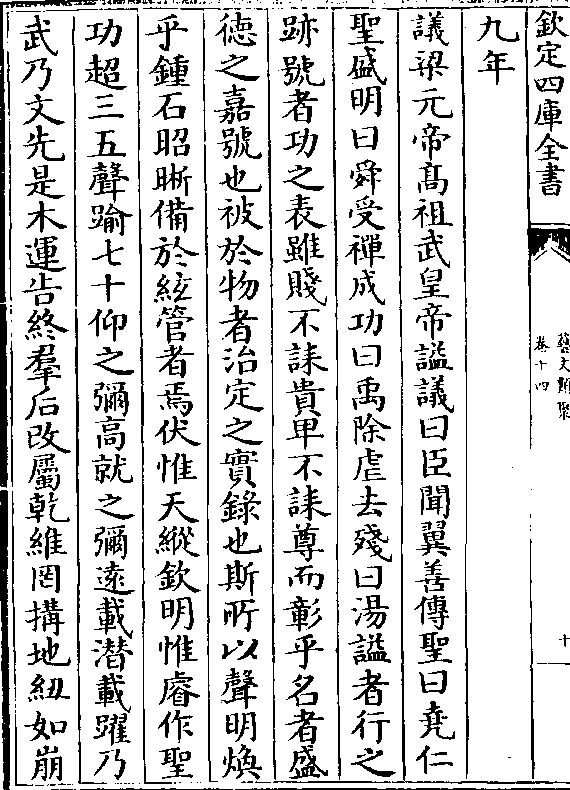 欽定四庫全書
藝文類聚
卷十四
十
九年
議梁元帝髙祖武皇帝謚議曰臣聞翼善傳聖曰堯仁
聖盛明曰舜受禪成功曰禹除虐去殘曰湯謚者行之
跡號者功之表雖賤不誄貴卑不誄尊而彰乎名者盛
徳之嘉號也被於物者治定之實錄也斯所以聲明煥
乎鍾石昭晰備於絃管者焉伏惟天縱欽明惟睿作聖
功超三五聲踰七十仰之彌高就之彌遠載潜載躍乃
武乃文先是木運告終羣后改屬乾維罔搆地紐如崩